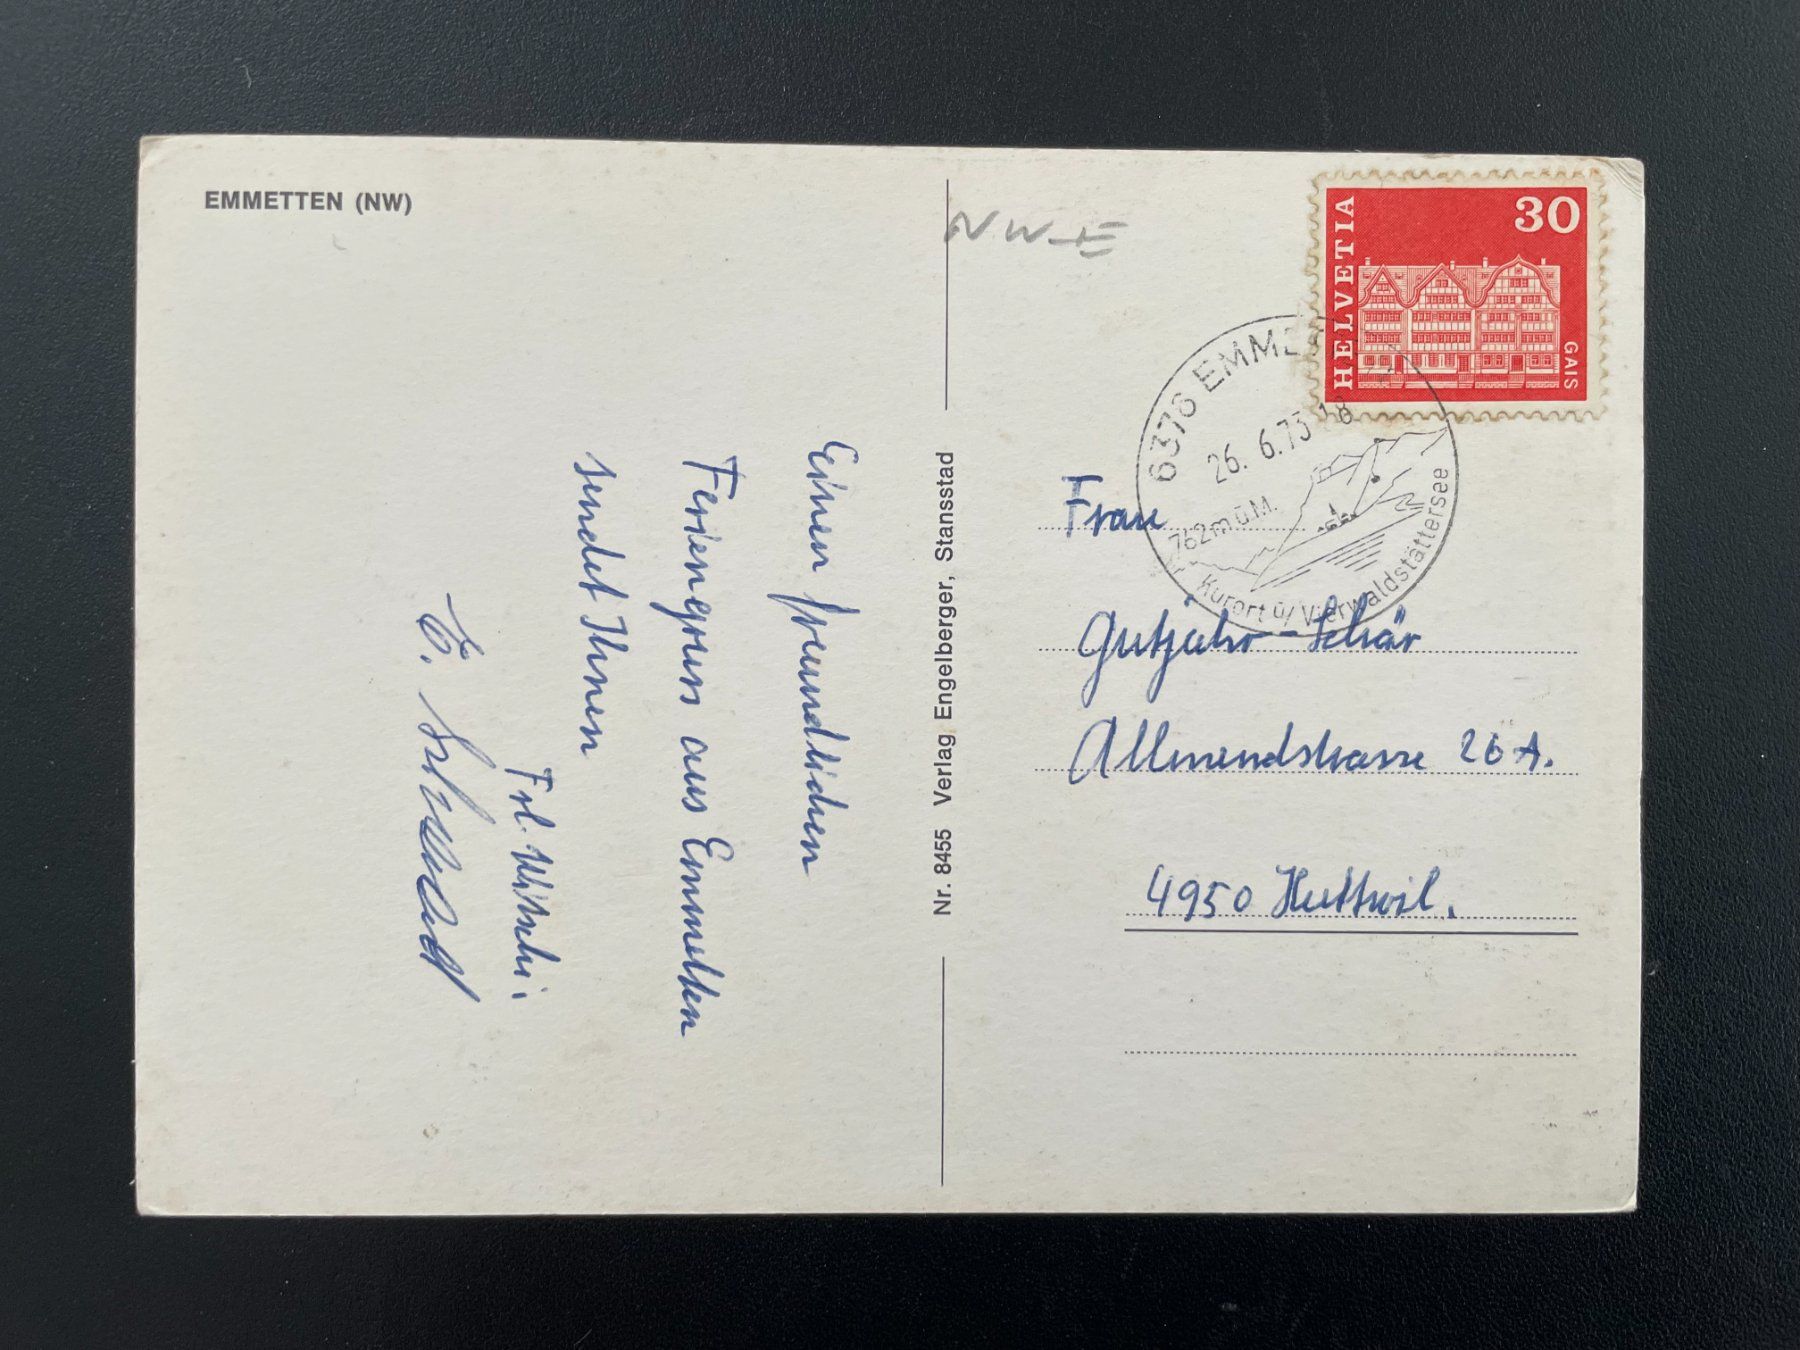 EMMETTEN (NW)
NW-E
HELVETIA
30
GAIS
6376 EMMETTEN
26. 6. 73 18
762 m ü. M.
Kurort ü/ Vierwaldstättersee
Einen freundlichen
Feriengruss aus Emmetten
sendet Ihnen
Frl. Witschi
E.
Nr. 8455 Verlag Engelberger, Stansstad
Frau
Gutjahr-Schär
Allmendstrasse 26 A.
4950 Huttwil.